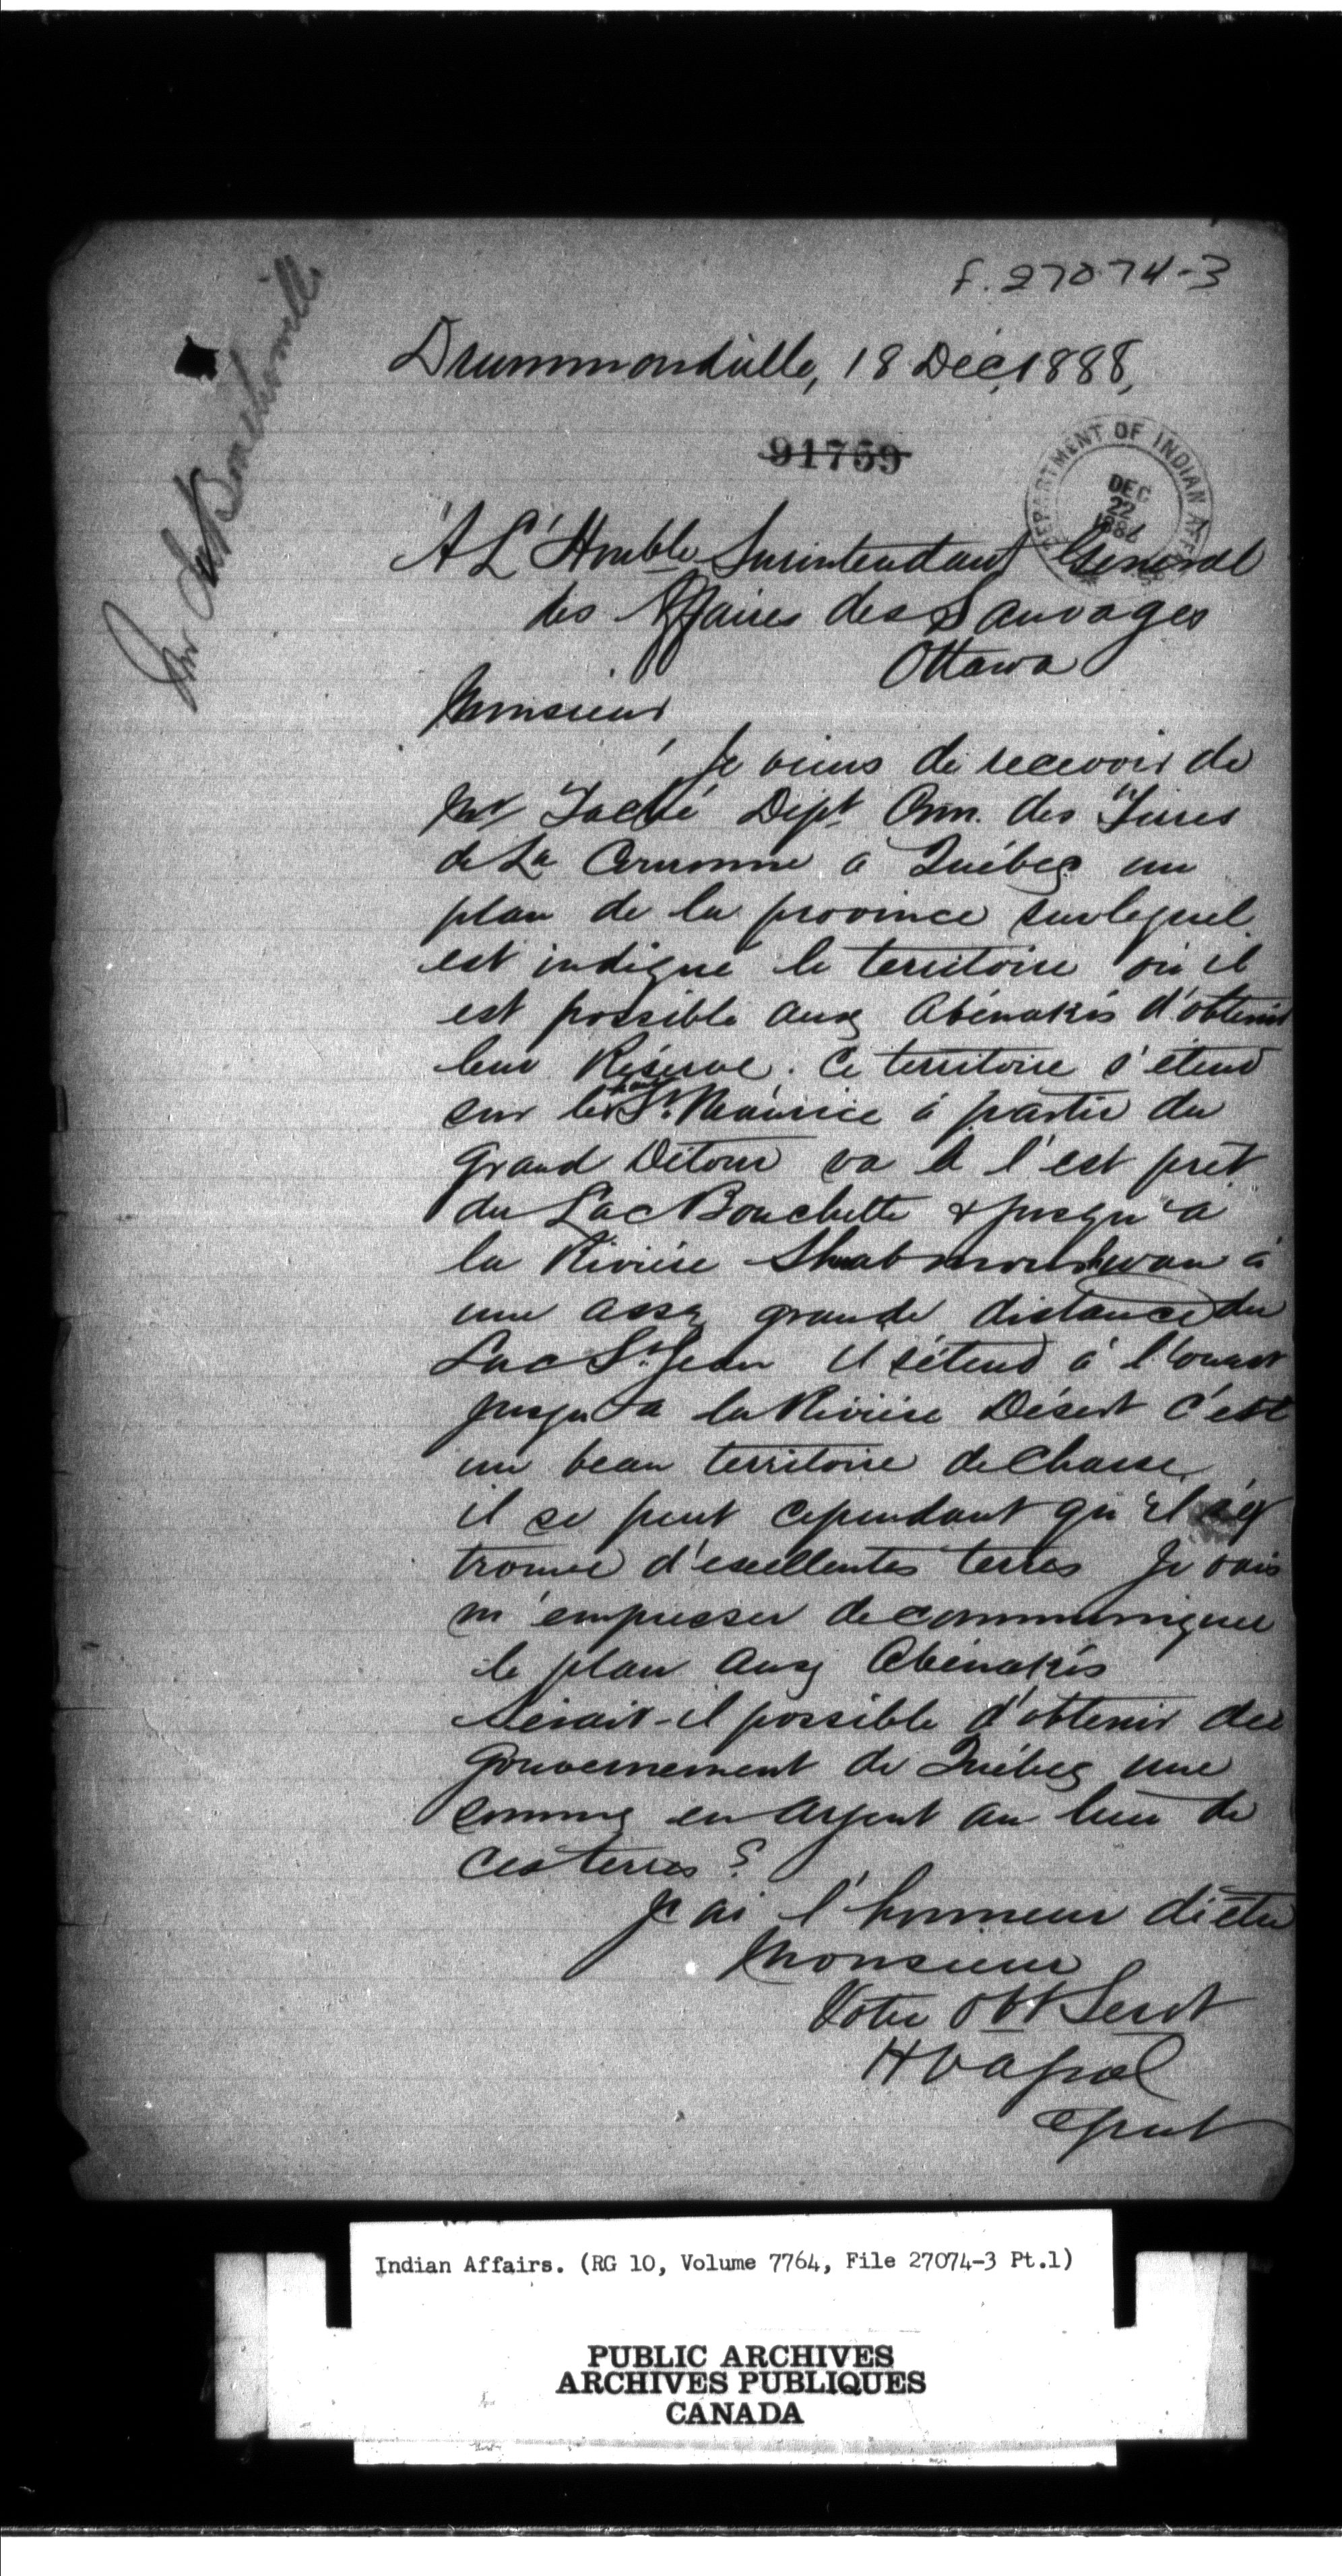 f. 27074-3
Mr de Boucherville
Drummondville, 18 Déc, 1888,
91759
DEPARTMENT OF INDIAN AFF
DEC
22
188
A L'Honble Surintendant General
des Affaires des Sauvages
Ottawa
Monsieur
Je viens de recevoir de
Mr Taché Dept Com. des Terres
de La Couronne à Québec un
plan de la province sur lequel
est indiqué le territoire où il
est possible aux Abénakis d'obtenir
leur Réserve. Ce territoire s'étend
sur le haut St. Maurice à partir du
Grand Détour va à l'est prèt
du Lac Bouchette & jusqu'à
la Rivière à
une assez grande distance du
Lac St. Jean il s'étend à l'ouest
jusqu'à la Rivière Désert c'est
un beau territoire de Chasse
il se peut cependant qu'il s'y
trouve d'excellentes terres Je vais
m'empresser de communiquer
le plan aux Abénakis
Serait-il possible d'obtenir du
Gouvernement de Québec une
somme en argent au lieu de
ces terres ?
J'ai l'honneur d'être
Monsieur
Votre Obt Servt
H Vassal
Agent
Indian Affairs. (RG 10, Volume 7764, File 27074-3 Pt.1)
PUBLIC ARCHIVES
ARCHIVES PUBLIQUES
CANADA